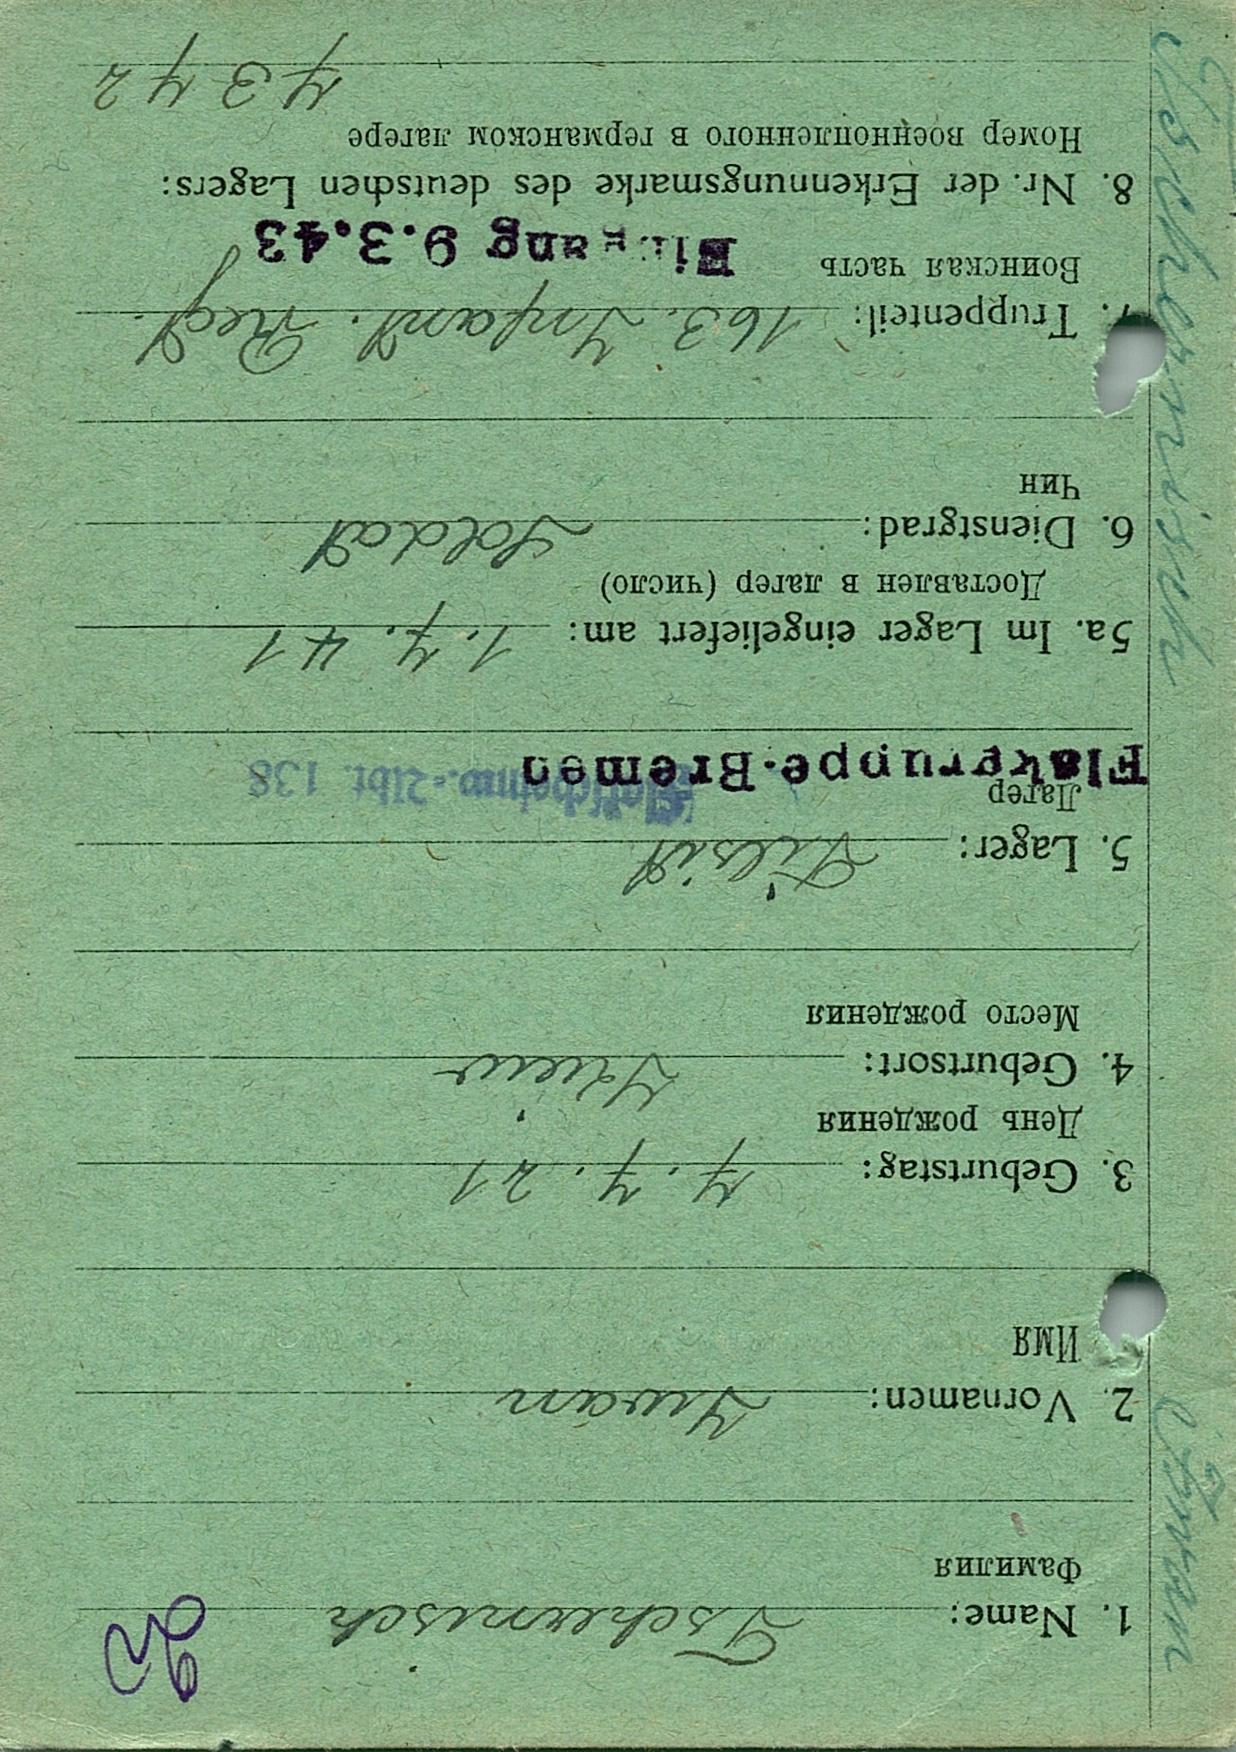 1. Name: Tschernisch
Фамилия
2. Vornamen: Iwan
Имя
3. Geburtstag: 7. 7. 21
День рождения
4. Geburtsort:
Место рождения
5. Lager: Tilsit
Лагер
Flakgruppe-Bremen
138
5a. Im Lager eingeliefert am: 1. 7. 41
Доставлен в лагер (число)
6. Dienstgrad: Soldat
Чин
7. Truppenteil: 163. Infant. Regt.
Воинская часть
Eingang 9.3.43
8. Nr. der Erkennungsmarke des deutschen Lagers:
Номер военнопленного в германском лагере
7 3 7 2
Tschernisch Iwan